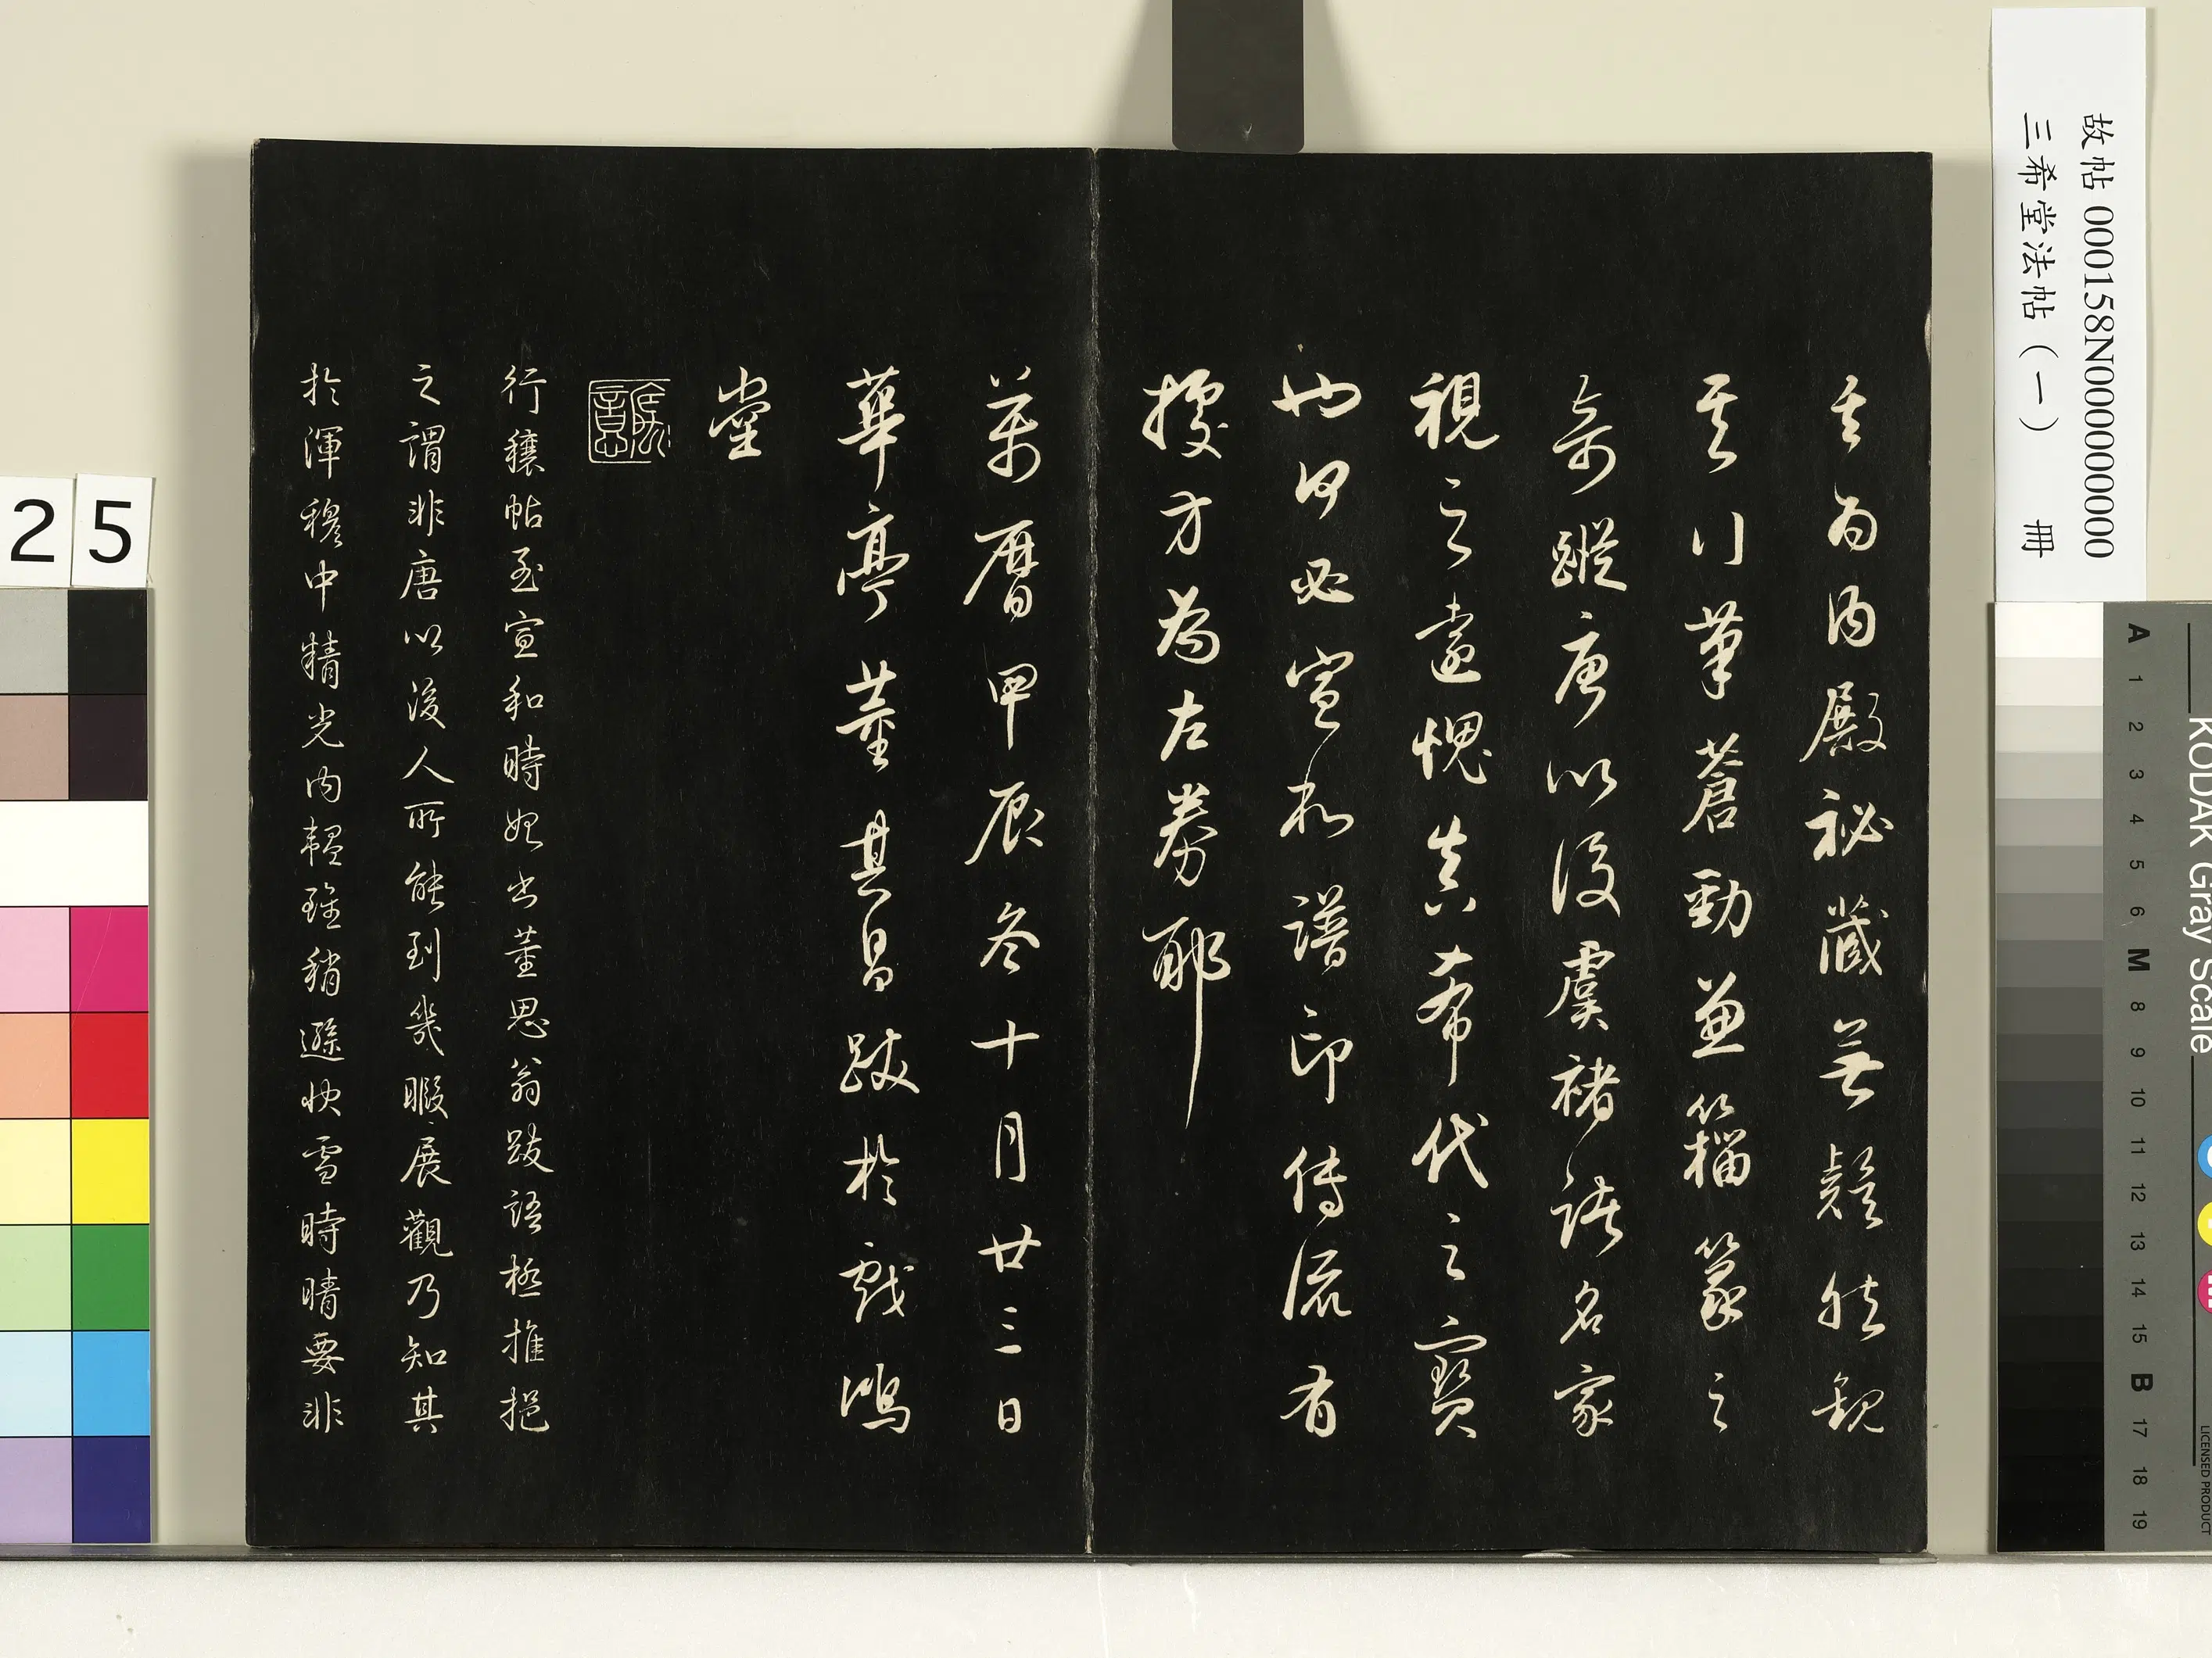 其為內殿秘藏無疑然觀
其行筆蒼勁兼籀篆之
奇蹤唐以後虞褚諸名家
視之遠愧真希代之寶
也何必宣和譜印傳流有
據方為左券耶
萬曆甲辰冬十月廿三日
華亭董其昌跋於戲鴻
堂
行穰帖至宣和時始出董思翁跋語極推挹
之謂非唐以後人所能到幾暇展觀乃知其
於渾穆中精光內韞雖稍遜快雪時晴要非
故帖 000158N000000000
三希堂法帖（一） 冊
25
KODAK Gray Scale
LICENSED PRODUCT
A 1 2 3 4 5 6 M 8 9 10 11 12 13 14 15 B 17 18 19